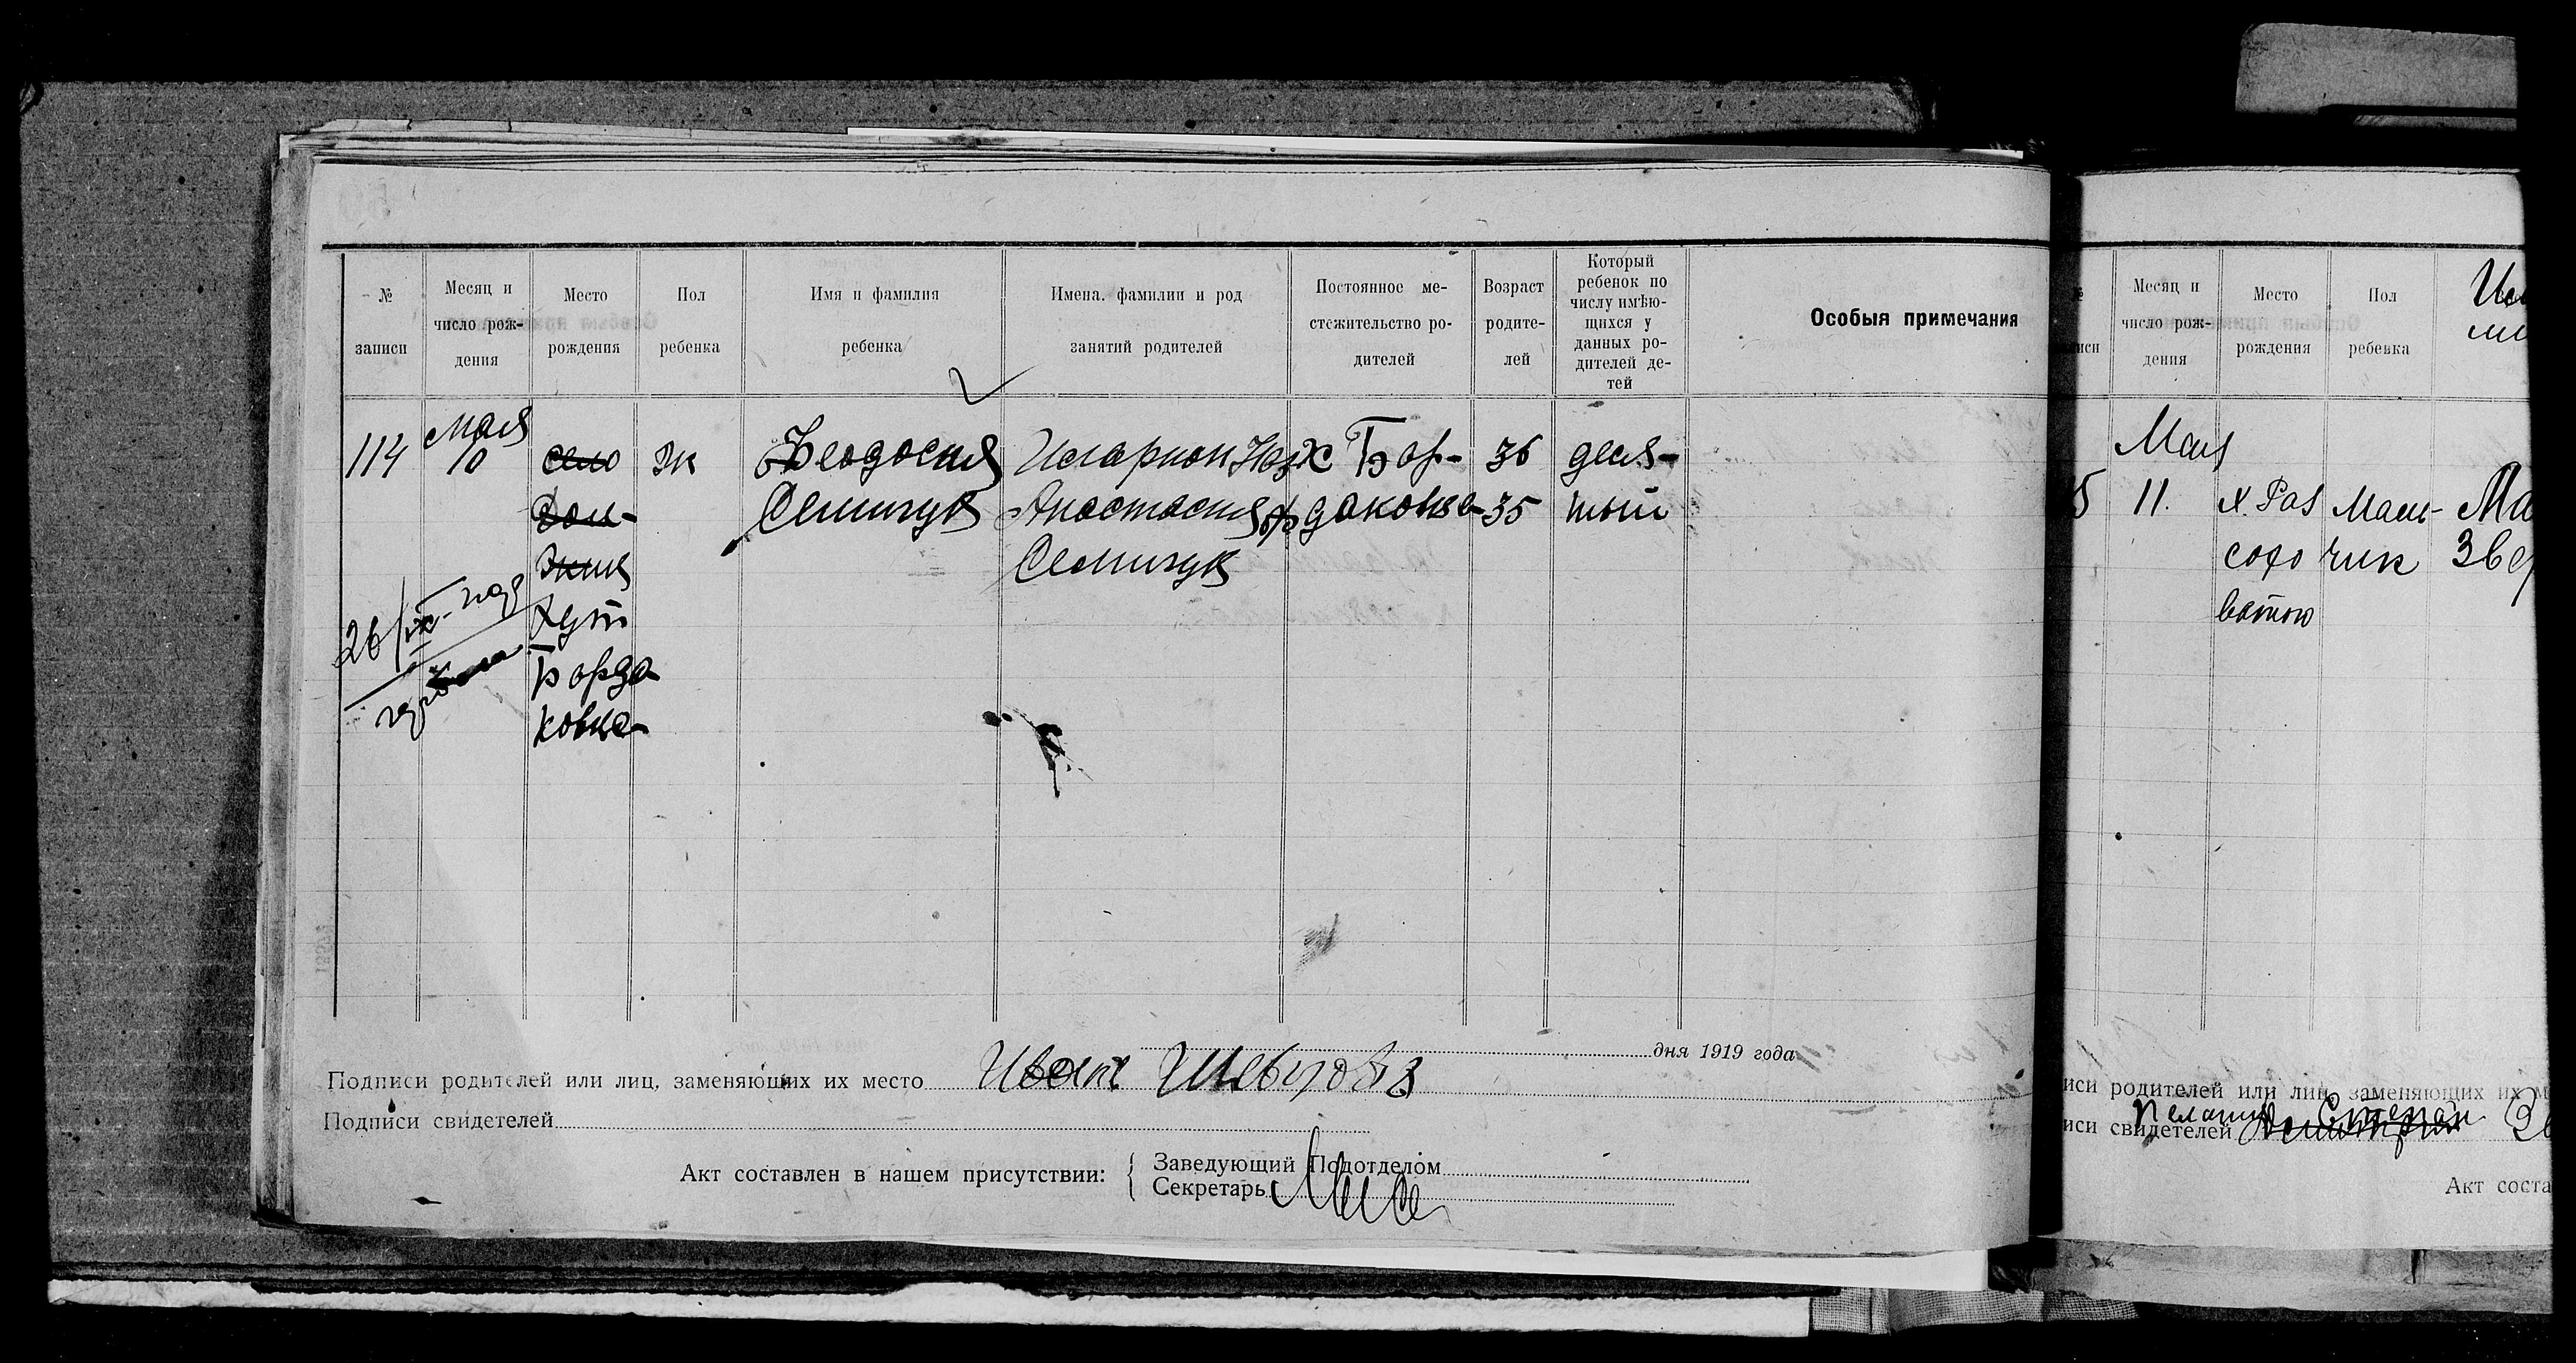 №
записи
Месяц и
число рож-
дения
Место
рождения
Пол
ребенка
Имя и фамилия
ребенка
Имена. фамилии и род
занятий родителей
Постоянное ме-
стожительство ро-
дителей
Возраст
родите-
лей
Который
ребенок по
числу имѣю-
щихся у
данных ро-
дителей де-
тей
Особыя примечания
114
Мая
10
село
Дол-
жик
Хут
Борда
ковка
ж
Феодосия
Семичук
Иларион
Анастасия
Семичук
Х Бор-
даковка
36
35
деся-
тый
26/IX
дня 1919 года
Подписи родителей или лиц, заменяющих их место Иван
Подписи свидетелей
Акт составлен в нашем присутствии:
Заведующий Подотделом
Секретарь
№
иси
Месяц и
число рож-
дения
Место
рождения
Пол
ребенка
5
Мая
11.
х. Раз
сохо
ватою
Маль-
чик
Ма
Звя
иси родителей или лиц, заменяющих их м
Пелагия Степан
иси свидетелей
Акт соста